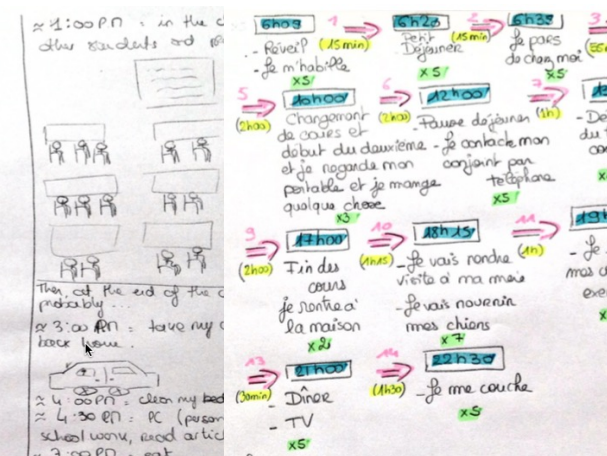 ≈ 1:00 PM : in the c
other students and
Then, at the end of the c
probably ...
≈ 3:00 PM : take my c
back home.
≈ 4:00 PM : clean my bed
≈ 4:30 PM : PC (person
school work, read artic
≈ 7:00 PM : eat
6h09
- Réveil
- Je m'habille
x5
1
(15min)
6h20
Petit
Déjeuner
x5
2
(15min)
6h35
Je pars
de chez moi
x5
3
5
(2h00)
10h00
Changement
de cours et
début du deuxième
et je regarde mon
portable et je mange
quelque chose
x3
6
(2h00)
12h00
- Pause déjeuner
- Je contacte mon
conjoint par
téléphone
x5
7
(1h)
- De
du
co
9
(2h00)
17h00
Fin des
cours
je rentre à
la maison
x2
10
(1h15)
18h15
- Je vais rendre
visite à ma mère
- Je vais nourrir
mes chiens
x7
11
(1h)
19h
- Je
mes d
exe
13
(30min)
21h00
- Dîner
- TV
x5
14
(1h30)
22h30
- Je me couche
x5